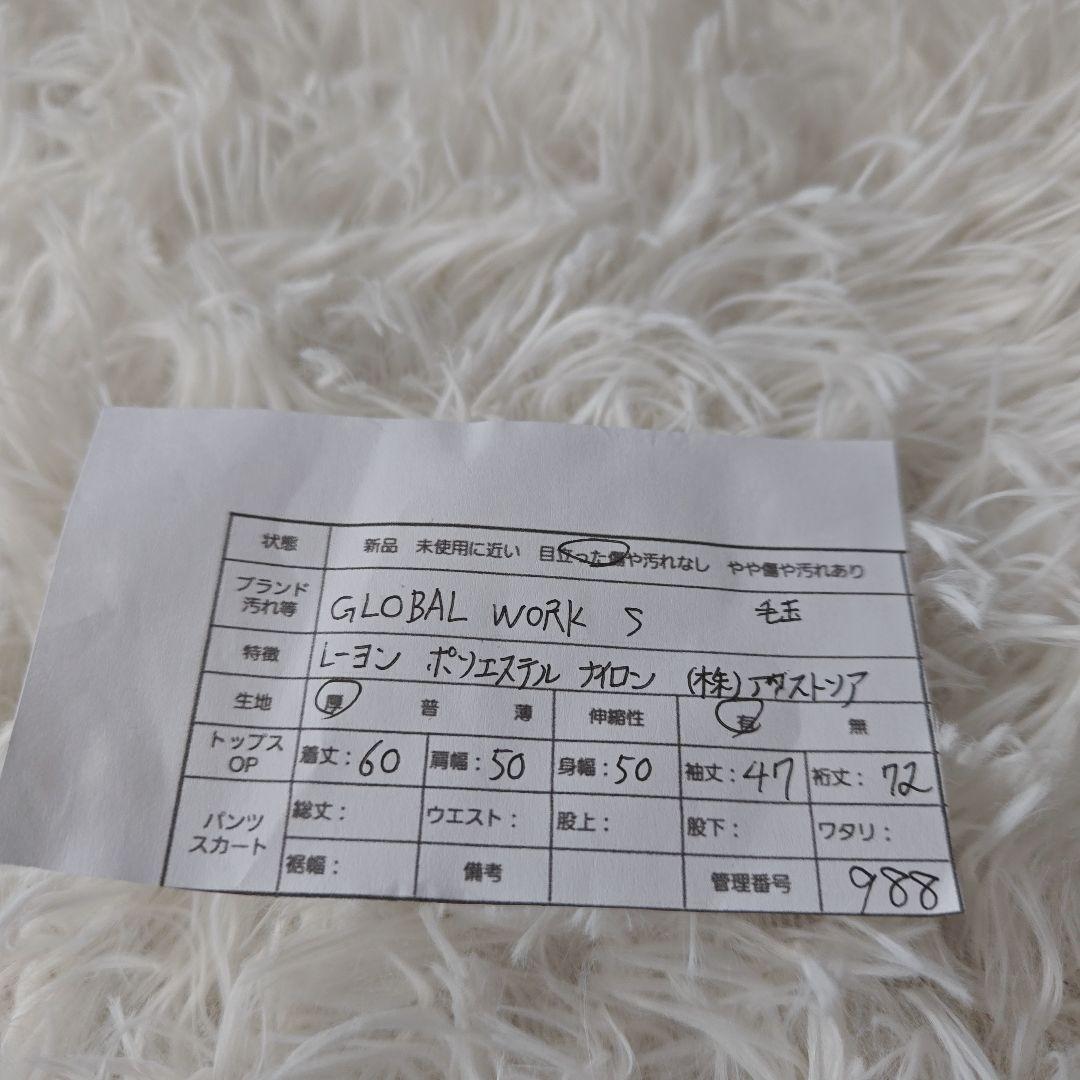 状態 新品 未使用に近い 目立った傷や汚れなし やや傷や汚れあり
ブランド
汚れ等 GLOBAL WORK S 毛玉
特徴 レーヨン ポリエステル ナイロン (株)アダストリア
生地 厚 普 薄 伸縮性 有 無
トップス
OP 着丈:60 肩幅:50 身幅:50 袖丈:47 裄丈:72
パンツ
スカート 総丈: ウエスト: 股上: 股下: ワタリ:
裾幅: 備考 管理番号 988